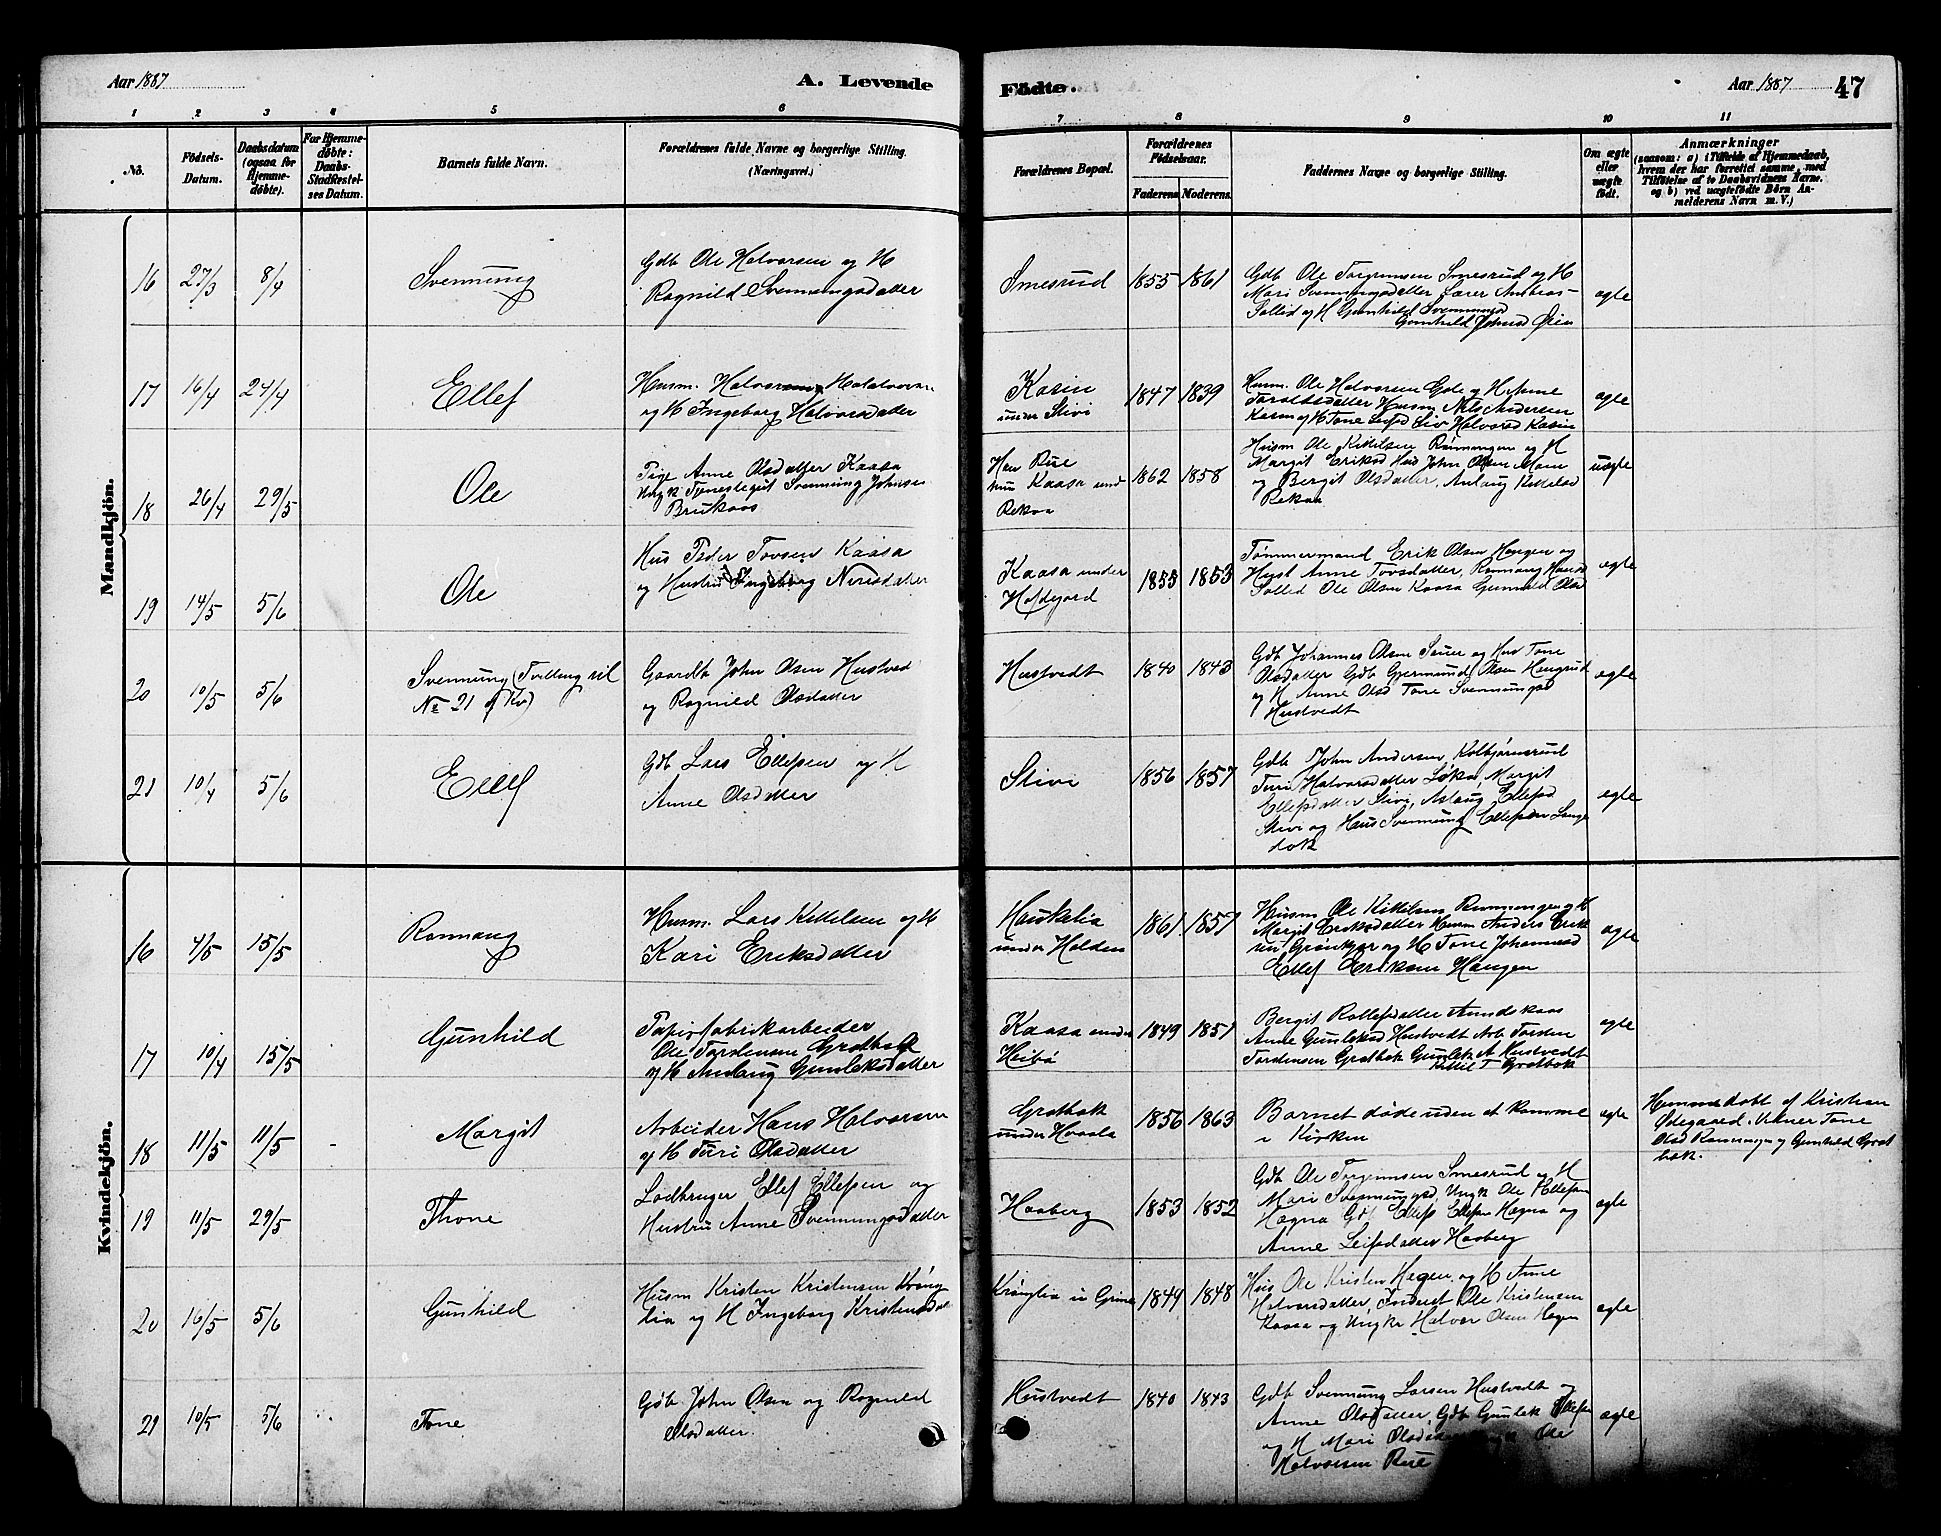 Aar 1887 A. Levende
Födte. Aar 1887 47
1 2 3 4 5 6
7 8 9 10 11
No.
Födsels-
Datum.
Daabsdatum
(ogsaa for
Hjemme-
döbte).
For Hjemme-
döbte:
Daabs-
Stadfæstel-
ses Datum.
Barnets fulde Navn.
Forældrenes fulde Navne og borgerlige Stilling.
(Næringsvei.)
Forældrenes Bopæl.
Forældrenes
Födselsaar.
Faderens. Moderens.
Faddernes Navne og borgerlige Stilling.
Om ægte
eller
uægte
födt.
Anmærkninger
(saasom: a) i Tilfælde af Hjemmedaab,
hvem der har forrettet samme, med
Tilföielse af to Daabsvidners Navne.
og b) ved uægtefödte Börn An-
melderens Navn m. V.)
Mandkjön.
16 27/3 8/4 Svennung
Gdb Ole Halvorsen og H
Ragnild Svennungsdatter
Smesrud 1855 1861
Gdb Ole Torgrimsen Smesrud og H
Mari Svennungsdatter Lærer Andreas
Sollid og H Gunhild Svennungsd
Gunhild Johnsd Øien
ægte
17 16/4 24/4 Ellef
Husm. Halvor
og H Ingeborg Halvorsdatter
Kasin
under Stivi
1847 1839
Husm. Ole Halvorsen Gde og H Anne
Taraldsdatter Husm Nils Andersen
Kasin og H Tone Leifsd Liv Halvorsd Kasin
ægte
18 26/4 29/5 Ole
Pige Anne Olsdatter Kaasa
Ungk Tjenestegut Svennung Johnsen
Brukaas
Han Rue
hun Kaasa und
Rekaa
1862 1858
Husm Ole Kittilsen Rønningen og H
Margit Eriksd Hus John Olsen Moen
og Bergit Olsdatter, Aslaug Kittelsd
Rekaa
uægte
19 14/5 5/6 Ole
Hus Peder Tovsen Kaasa
og Hustru Ingeborg Nirisdatter
Kaasa under
Hofdejord
1855 1853
Tømmermand Erik Olsen Haugen og
Hust Anne Tovsdatter, Rannaug
Sollid Ole Olsen Kaasa Gunnild Olsd
ægte
20 10/5 5/6 Svennung (Tvilling til
No 21 af Kv)
Gaardb John Olsen Hustved
og Ragnild Olsdatter
Hustvedt 1840 1843
Gdb Johannes Olsen Sauer og Hus Tone
Olsdatter Gdb Gjermund Olsen Haugrud
og H Anne Olsd Tone Svennungsd
Hustvedt
ægte
21 10/4 5/6 Ellef
Gdb Lars Ellefsen og H
Anne Olsdatter
Stivi 1856 1857
Gdb John Andersen, Kolbjørnsrud
Turi Halvorsdatter Løka, Margit
Ellefsdatter Stivi, Aslaug Ellefsd
Stivi og Hus Svennung Ellefsen Lange
dok
egte
Kvindekjön.
16 4/5 15/5 Rannaug
Husm. Lars Kittelsen og H
Kari Eriksdatter
Haukelia
under Holden
1861 1857
Husm Ole Kittilsen Rønningen og H
Margit Eriksdatter Husm Anders Erik
sen Grønkjær og H Tone Johannesd
Ellef Eriksen Haugen
ægte
17 10/4 15/5 Gunhild
Papirfabrikarbeider
Ole Tordensen Grotbæk
og H Anlaug Gunleksdatter
Kaasa under
Heibø
1849 1851
Bergit Rollefsdatter Aundekaas
Anne Gunleksd Hustvedt Arb Torden
Tordensen Grotbæk Gunlek A Hustvedt
Kittil T Grotbæk
ægte
18 11/5 11/5 - Margit
Arbeider Hans Halvorsen
og H Turi Olsdatter
Grotbæk
under Haasla
1856 1863
Barnet døde uden at komme
i Kirken
ægte
Hjemmedøbt af Kristian
Ødegaard. Vidner Tone
Olsd Rønningen og Gunhild Grot
bæk.
19 11/5 29/5 Thone
Lodbruger Ellef Ellefsen og
Hustru Anne Svennungsdatter
Haaberg 1853 1852
Gdb Ole Torgrimsen Smesrud og H
Mari Svennungsd, Ungk Ole Ellefsen
Hægna Gdb Ellef Ellefsen Hegna og
Anne Leifsdatter Haaberg
ægte
20 16/5 5/6 Gunhild
Husm Kristen Kristensen Krøng
lia og H Ingeborg Kristensdat
Krønglia u Grine 1849 1848
Hus Ole Kristen Hegen og H Anne
Halvorsdatter, Inderst Ole Kristensen
Kaasa og Ungkr Halvor Olsen Hegen
ægte
21 10/5 5/6 Tone
Gdb John Olsen og Ragnild
Olsdatter.
Hustvedt 1840 1843
Gdb Svennung Larsen Hustvedt og
Anne Olsdatter, Gdb Gunlek Ellefsen
og H Mari Olsd Ole
Halvorsen Rue
ægte